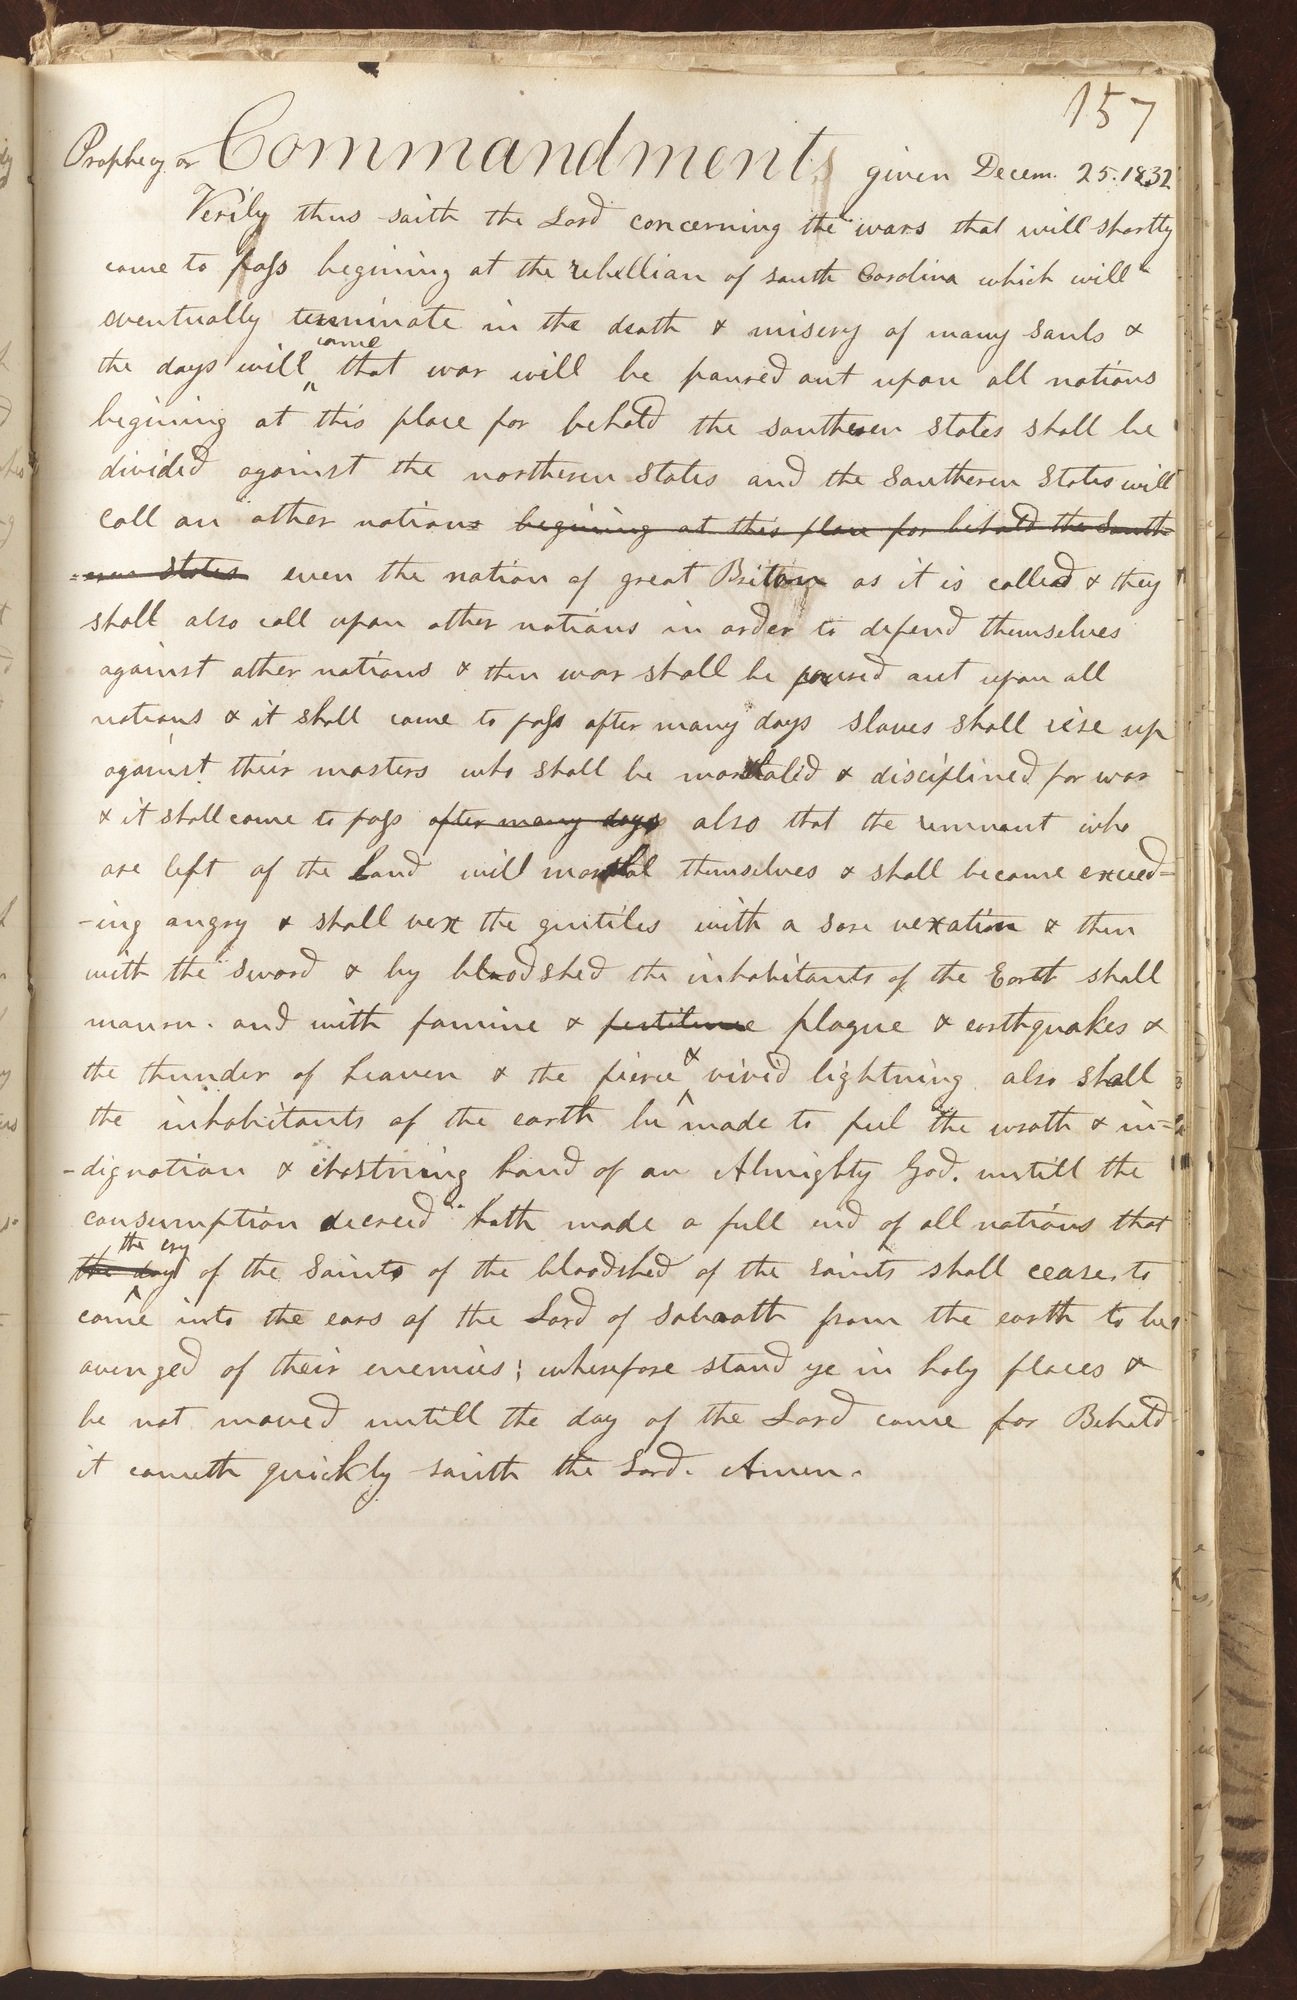 157
Prophecy or Commandments given Decem. 25. 1832
Verily thus saith the Lord concerning the wars that will shortly
come to pass begining at the rebellian of south Carolina which will
eventually terminate in the death & misery of many souls &
the days will come that war will be poured out upon all nations
begining at this place for behold the southern states shall be
divided against the northern States and the Southern States will
call on other nations begining at this place for behold the South
=ern States even the nation of great Britan as it is called & they
shall also call upon other nations in order to defend themselves
against other nations & then war shall be poured out upon all
nations & it shall come to pass after many days slaves shall rise up
against their masters who shall be marshaled & disciplined for war
& it shall come to pass after many days also that the remnant who
are left of the Land will marshal themselves & shall become exceed=
-ing angry & shall vex the gentiles with a sore vexation & then
with the sword & by bloodshed the inhabitants of the Earth shall
mourn. and with famine & pestilence plague & earthquakes &
the thunder of heaven & the fierce & vivid lightning also shall
the inhabitants of the earth be made to feel the wrath & in=
-dignation & chastning hand of an Almighty God. untill the
consumption decreed hath made a full end of all nations that
the day the cry of the Saints of the bloodshed of the saints shall cease to
come into the ears of the Lord of sabaoth from the earth to be
avenged of their enemies; wherefore stand ye in holy places &
be not moved untill the day of the Lord come for Behold
it cometh quickly saith the Lord. Amen.